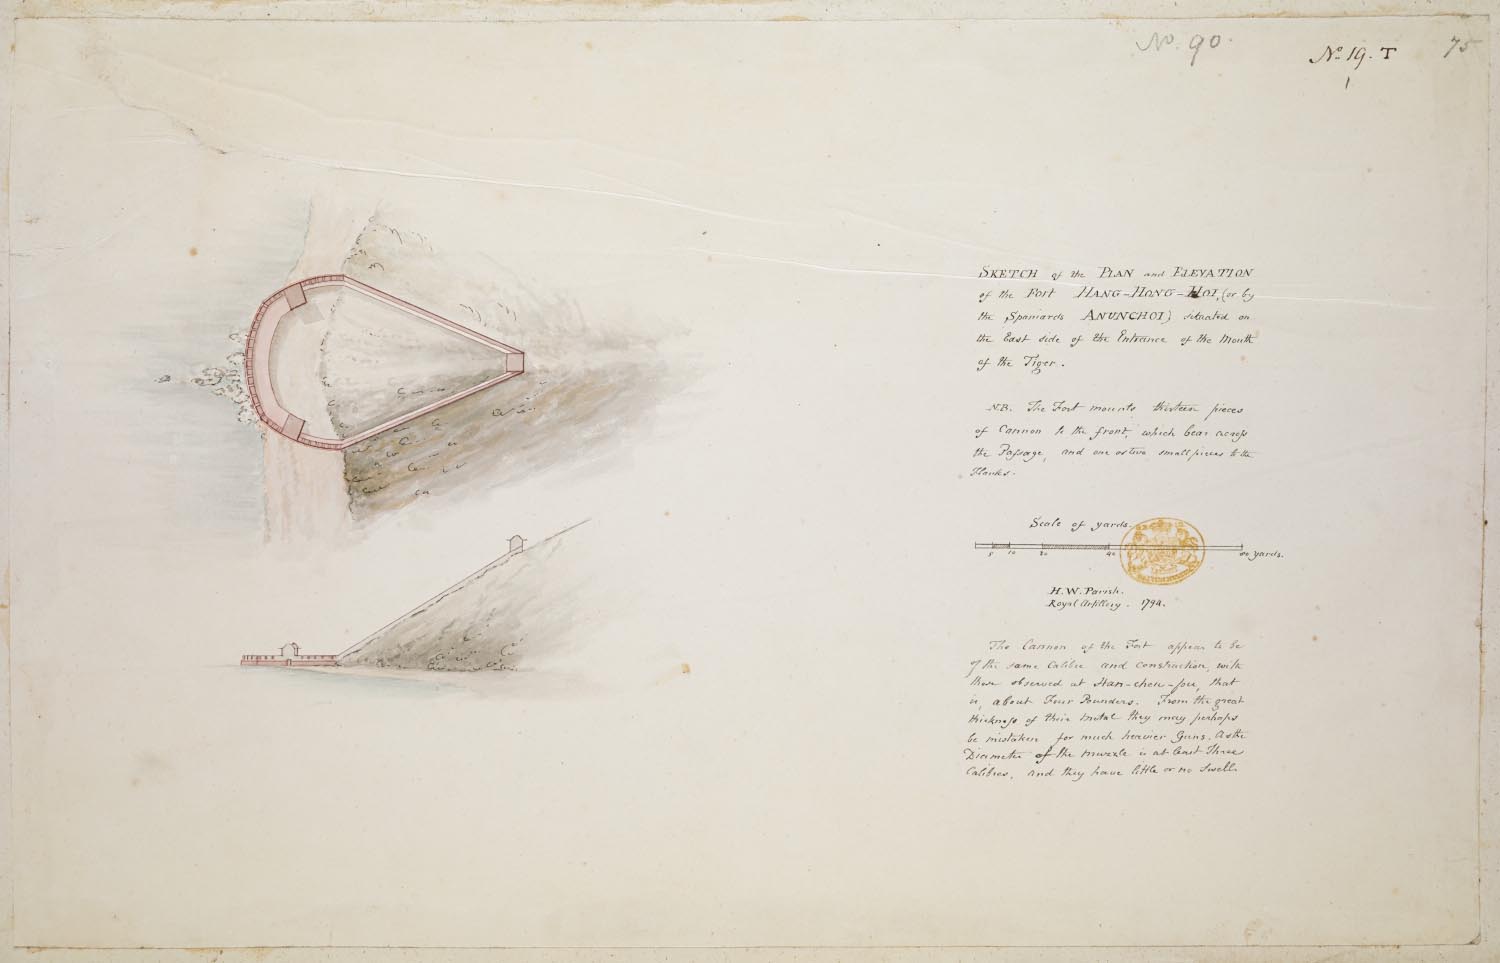 No. 90.
No. 19. T
1
75
SKETCH of the PLAN and ELEVATION
of the Fort HANG-HONG-HOI, (or by
the Spaniards ANUNCHOI) situated on
the East side of the Entrance of the Mouth
of the Tiger.
N.B. The Fort mounts thirteen pieces
of Cannon to the front, which bear across
the Passage, and one or two small pieces to the
Flanks.
Scale of yards.
5 10 20 40 80 yards.
H. W. Parish.
Royal Artillery. 1794.
The Cannon of the Fort appear to be
of the same Calibre and construction, with
those observed at Han-chou-fou, that
is, about Four Pounders. From the great
thickness of their metal they may perhaps
be mistaken for much heavier Guns. As the
Diameter of the muzzle is at least Three
Calibres, and they have little or no Swell.